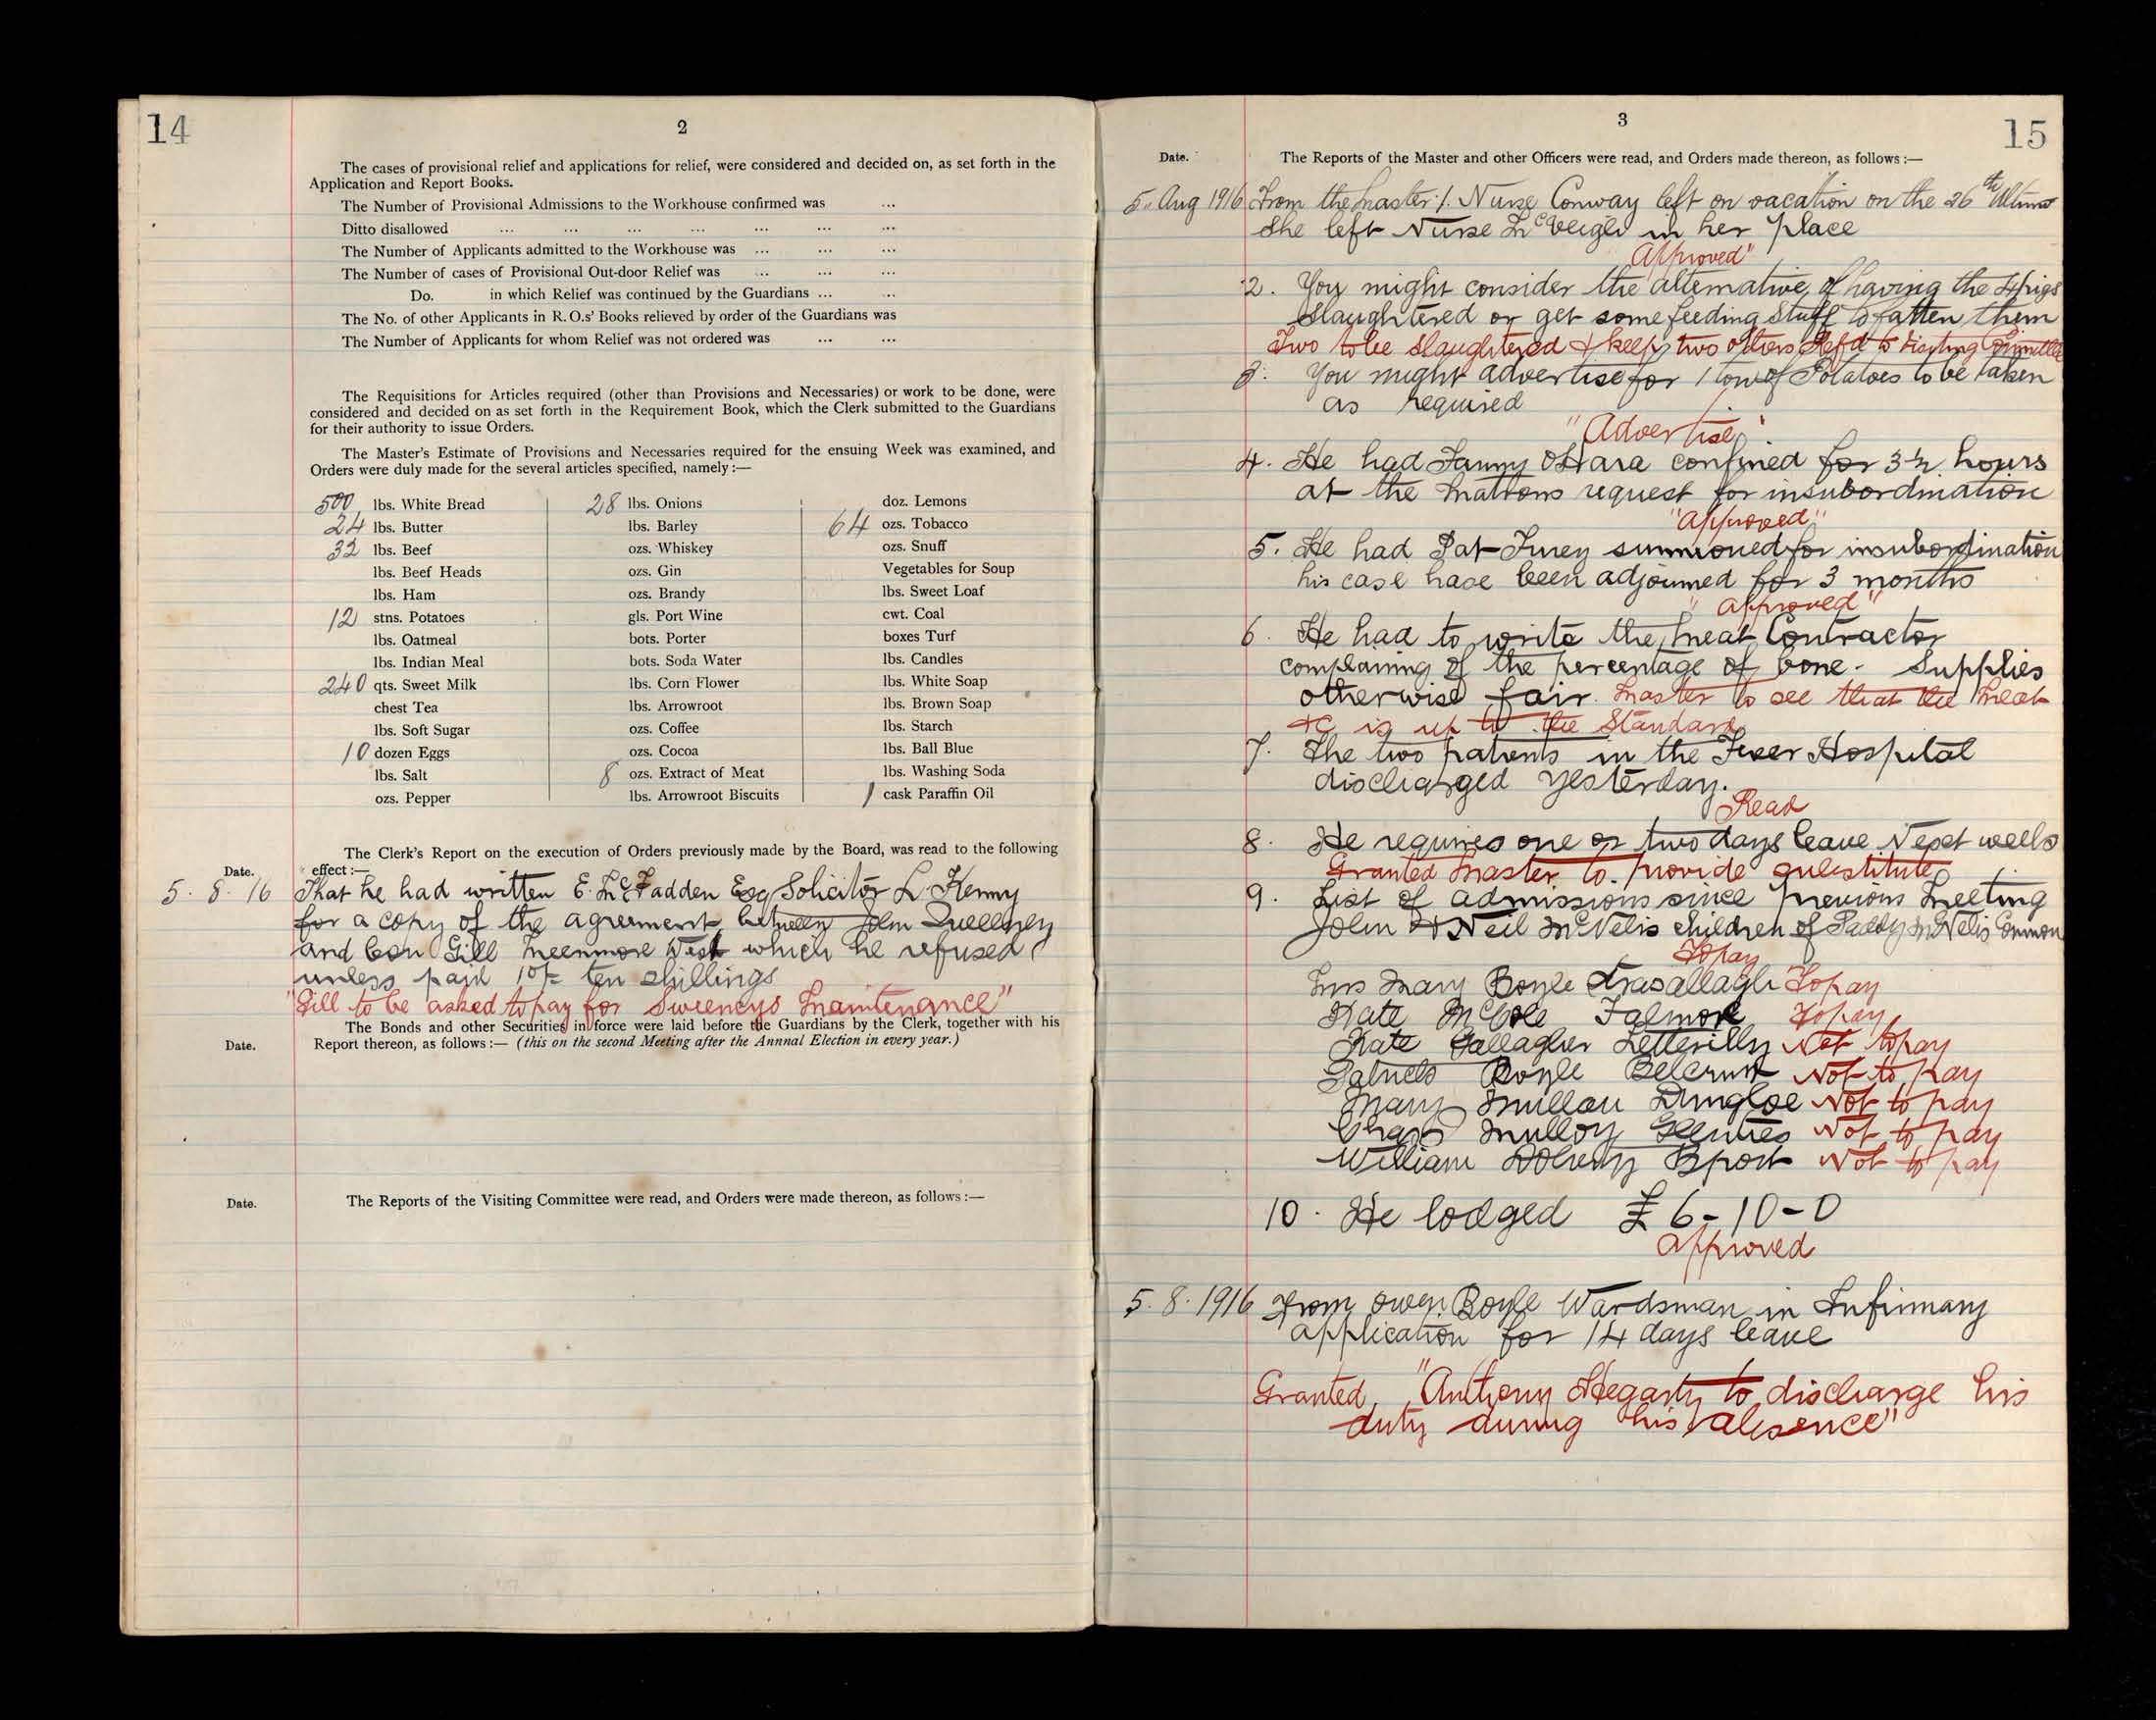 14
2
The cases of provisional relief and applications for relief, were considered and decided on, as set forth in the
Application and Report Books.
The Number of Provisional Admissions to the Workhouse confirmed was ...
Ditto disallowed ... ... ... ... ... ...
The Number of Applicants admitted to the Workhouse was ... ... ...
The Number of cases of Provisional Out-door Relief was ... ... ...
Do. in which Relief was continued by the Guardians ... ...
The No. of other Applicants in R.O.s' Books relieved by order of the Guardians was
The Number of Applicants for whom Relief was not ordered was ... ...
The Requisitions for Articles required (other than Provisions and Necessaries) or work to be done, were
considered and decided on as set forth in the Requirement Book, which the Clerk submitted to the Guardians
for their authority to issue Orders.
The Master's Estimate of Provisions and Necessaries required for the ensuing Week was examined, and
Orders were duly made for the several articles specified, namely :—
500 lbs. White Bread
24 lbs. Butter
32 lbs. Beef
lbs. Beef Heads
lbs. Ham
12 stns. Potatoes
lbs. Oatmeal
lbs. Indian Meal
240 qts. Sweet Milk
chest Tea
lbs. Soft Sugar
10 dozen Eggs
lbs. Salt
ozs. Pepper
28 lbs. Onions
lbs. Barley
ozs. Whiskey
ozs. Gin
ozs. Brandy
gls. Port Wine
bots. Porter
bots. Soda Water
lbs. Corn Flower
lbs. Arrowroot
ozs. Coffee
ozs. Cocoa
8 ozs. Extract of Meat
lbs. Arrowroot Biscuits
doz. Lemons
64 ozs. Tobacco
ozs. Snuff
Vegetables for Soup
lbs. Sweet Loaf
cwt. Coal
boxes Turf
lbs. Candles
lbs. White Soap
lbs. Brown Soap
lbs. Starch
lbs. Ball Blue
lbs. Washing Soda
1 cask Paraffin Oil
The Clerk's Report on the execution of Orders previously made by the Board, was read to the following
Date. effect :—
5. 8. 16 That he had written E. McFadden Esq Solicitor L. Kenny
for a copy of the agreement between John
and Con Gill Meenmore West which he refused
unless paid 10/= ten shillings
"Gill to be asked to pay for Sweeneys Maintenance"
The Bonds and other Securities in force were laid before the Guardians by the Clerk, together with his
Date. Report thereon, as follows :— (this on the second Meeting after the Annnal Election in every year.)
Date. The Reports of the Visiting Committee were read, and Orders were made thereon, as follows :—
3
15
Date. The Reports of the Master and other Officers were read, and Orders made thereon, as follows :—
5. Aug 1916 From the Master :1. Nurse Conway left on vacation on the 26th Ultimo
She left Nurse McVeigh in her place
Approved"
2. You might consider the alternative of having the 4 pigs
slaughtered or get some feeding stuff to fatten them
Two to be slaughtered & keep two others Ref'd to Visiting Committee
3. You might advertise for 1 ton of Potatoes to be taken
as required
"Advertise"
4. He had Fanny O'Hara confined for 3½ hours
at the Matrons request for insubordination
"Approved"
5. He had Pat Furey summoned for insubordination
his case have been adjourned for 3 months
"Approved"
6. He had to write the Meat Contractor
complaining of the percentage of bone. Supplies
otherwise fair. Master to see that the Meat
&c is up to the Standard
7. The two patients in the Fever Hospital
discharged yesterday.
Read
8. He requires one or two days leave Next week
Granted Master to provide substitute
9. List of admissions since previous Meeting
John & Neil McNelis children of Paddy McNelis
To pay
Mrs Mary Boyle To pay
Kate McCole Falmore To pay
Kate Gallagher Letterilly Not to pay
Boyle Belcruit Not to pay
Mary Mullan Dungloe Not to pay
Chas Mulloy Glenties Not to pay
William Doherty Bport Not to pay
10. He lodged £6-10-0
Approved
5. 8. 1916 From Owen Boyle Wardsman in Infirmary
application for 14 days leave
Granted, "Anthony Hegarty to discharge his
duty during his absence"